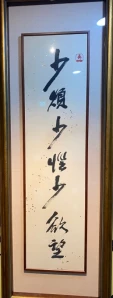 少煩少惱少欲望